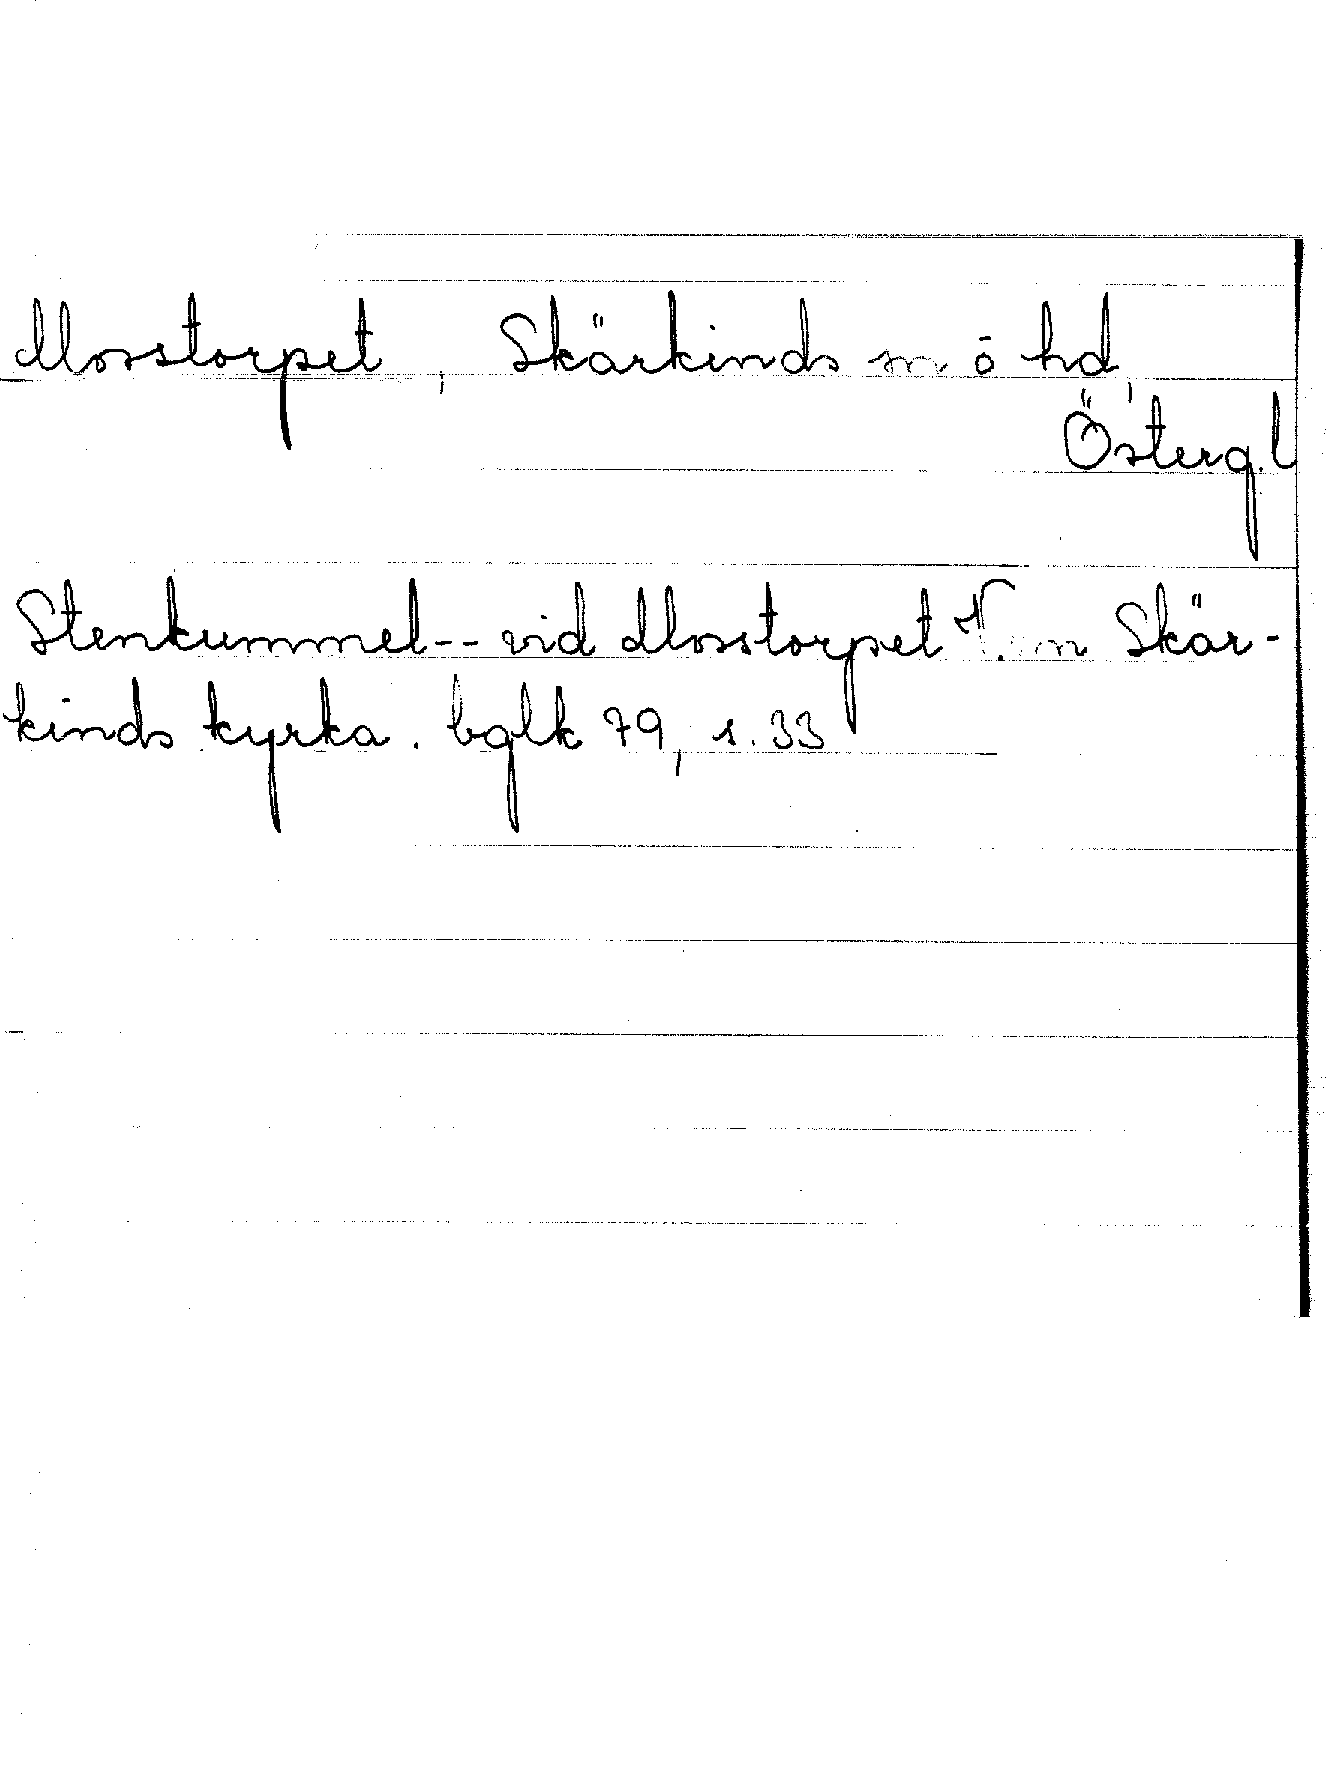 Mosstorpet, Skärkinds sn o hd,
Österg.l
Stenkummel -- vid Mosstorpet V. om Skär-
kinds kyrka. bglk 79, s. 33